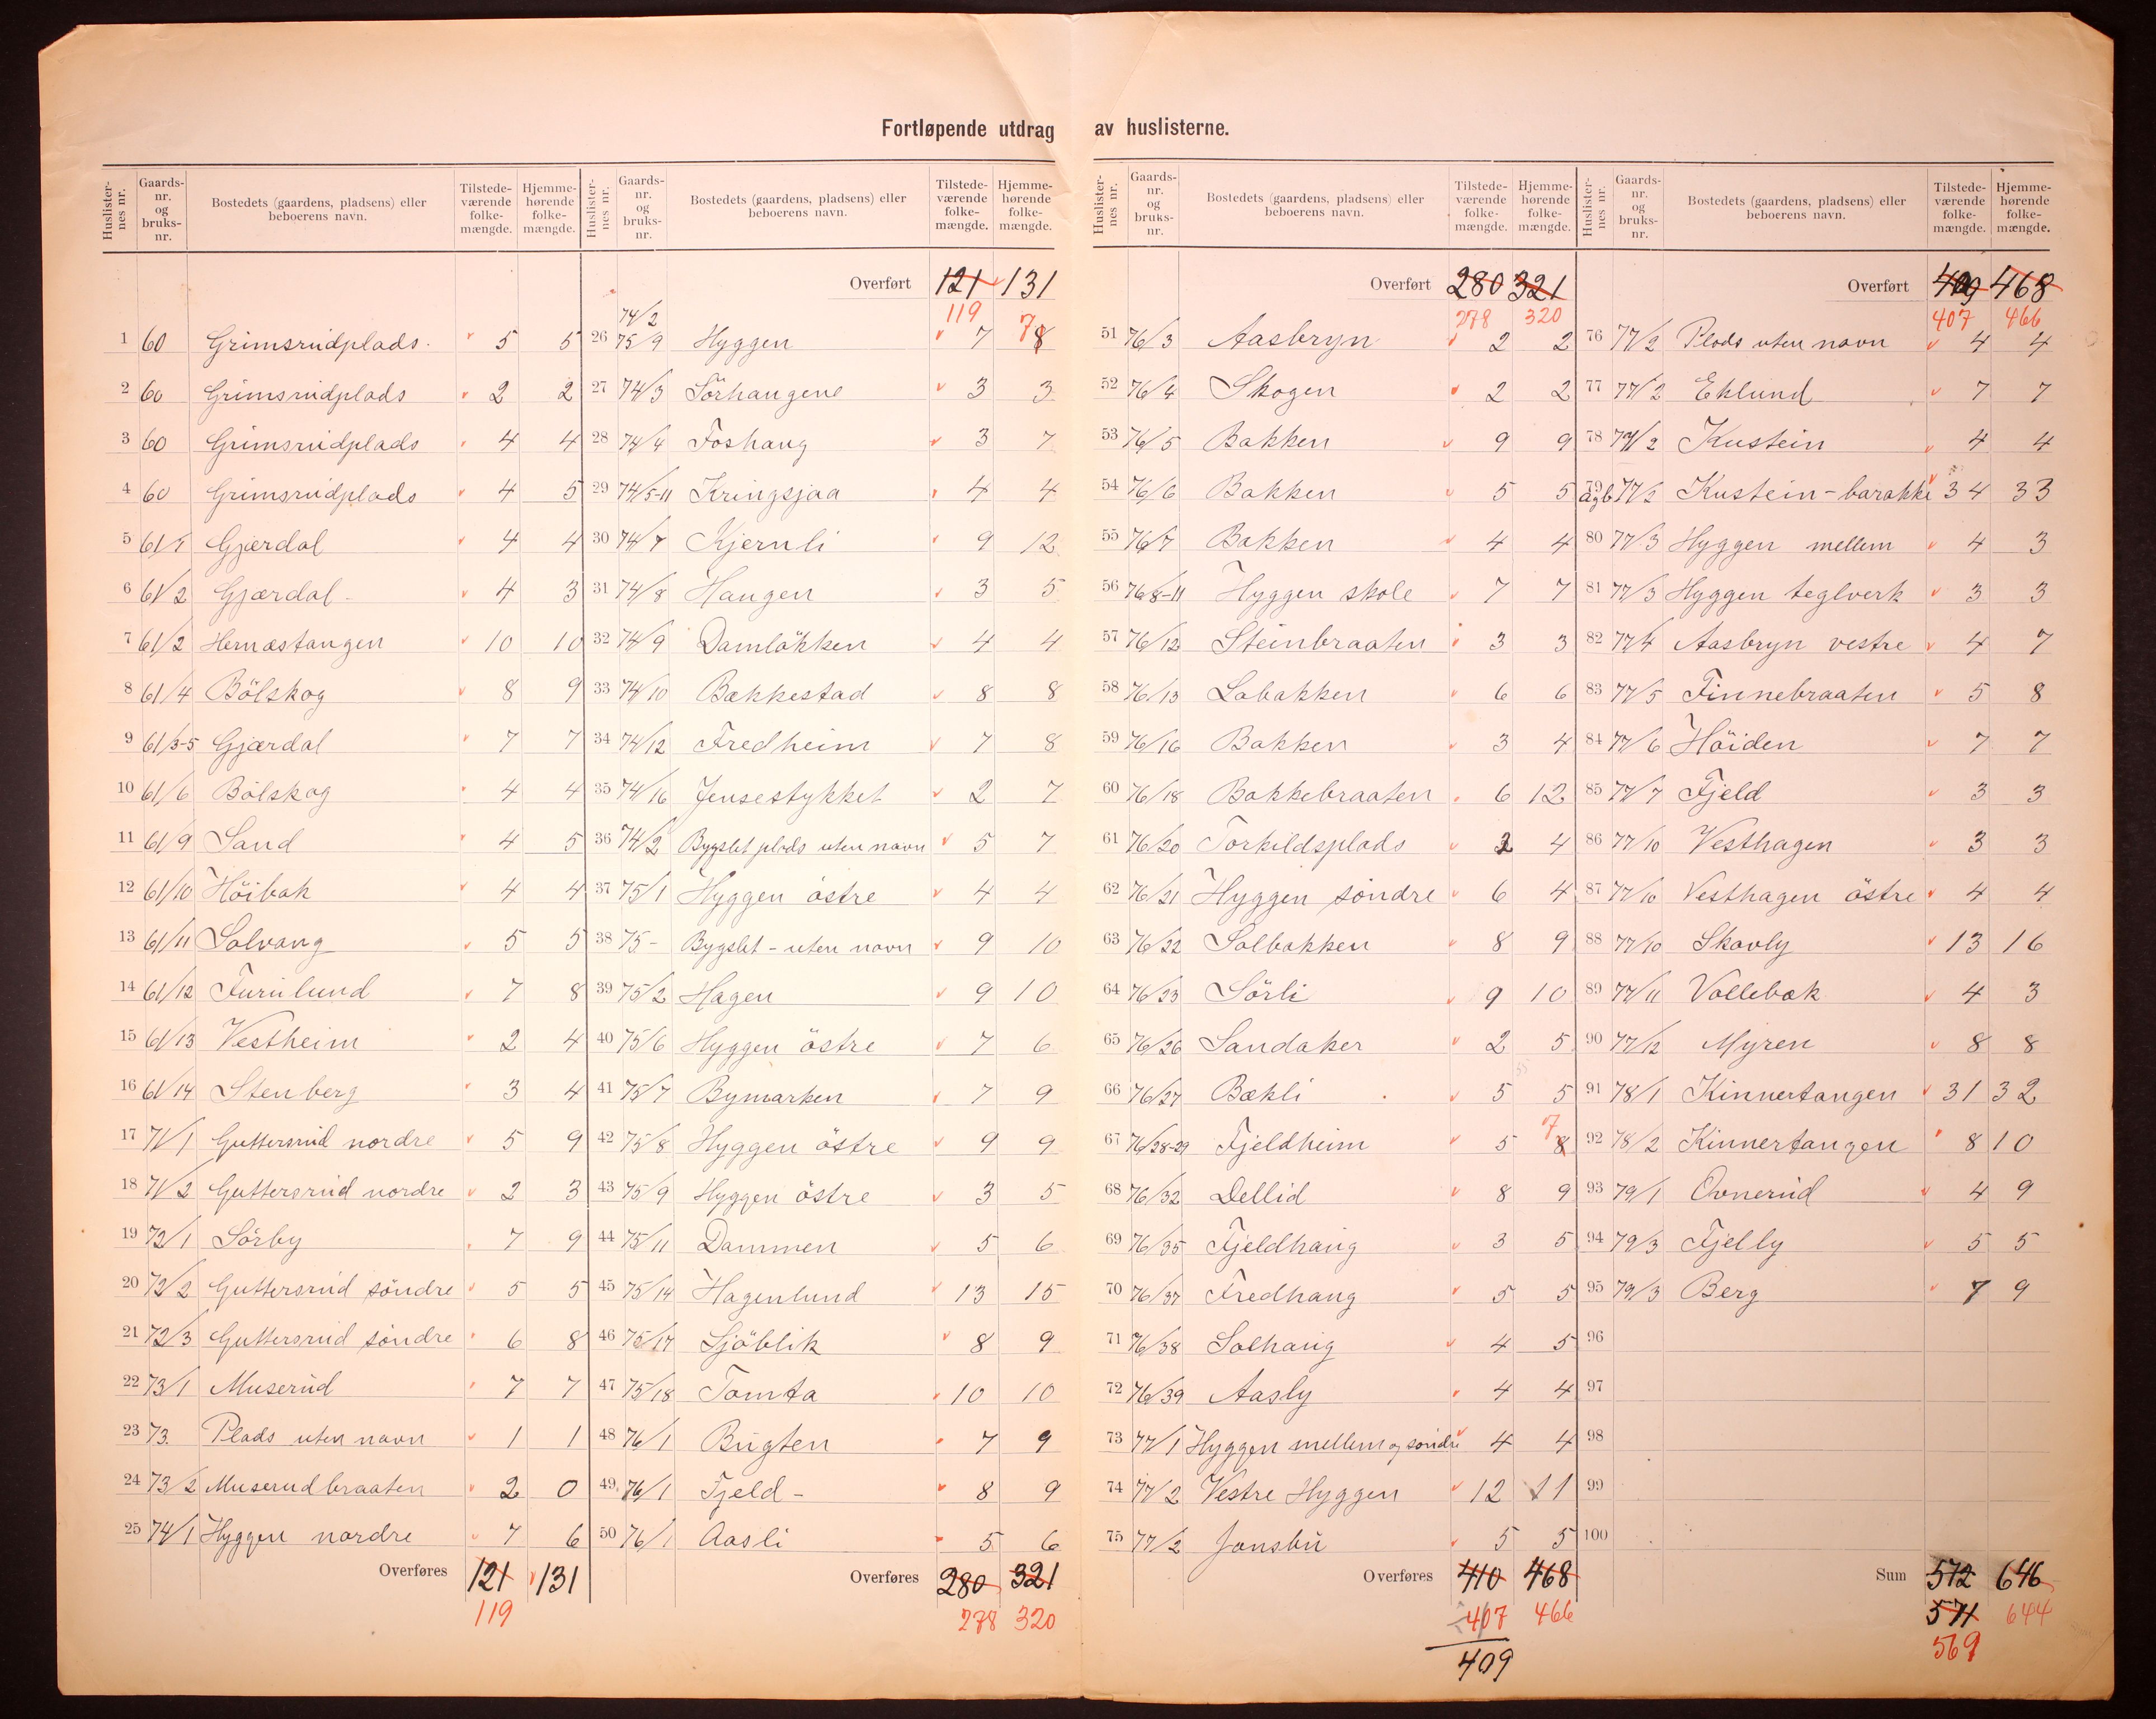 Fortløpende utdrag av huslisterne.
Huslisternes nr. Gaards-nr. og bruks-nr. Bostedets (gaardens, pladsens) eller beboerens navn. Tilstedeværende folkemængde. Hjemmehørende folkemængde.
1 60 Grimsrudplads 5 5
2 60 Grimsrudplads 2 2
3 60 Grimsrudplads 4 4
4 60 Grimsrudplads 4 5
5 61/1 Gjærdal 4 4
6 61/2 Gjærdal 4 3
7 61/2 Hernæstangen 10 10
8 61/4 Bölskog 8 9
9 61/3-5 Gjærdal 7 7
10 61/6 Bölskog 4 4
11 61/9 Sand 4 5
12 61/10 Höibak 4 4
13 61/11 Solvang 5 5
14 61/12 Furulund 7 8
15 61/13 Vestheim 2 4
16 61/14 Stenberg 3 4
17 71/1 Guttersrud nordre 5 9
18 71/2 Guttersrud nordre 2 3
19 72/1 Sörby 7 9
20 72/2 Guttersrud söndre 5 5
21 72/3 Guttersrud söndre 6 8
22 73/1 Muserud 7 7
23 73. Plads uten navn 1 1
24 73/2 Muserudbraaten 2 0
25 74/1 Hyggen nordre 7 6
Overføres 121 131
119
Huslisternes nr. Gaards-nr. og bruks-nr. Bostedets (gaardens, pladsens) eller beboerens navn. Tilstedeværende folkemængde. Hjemmehørende folkemængde.
Overført 121 131
119
26 74/2 75/9 Hyggen 7 8 7
27 74/3 Sörhaugene 3 3
28 74/4 Foshaug 3 7
29 74/5-11 Kringsjaa 4 4
30 74/7 Kjernli 9 12
31 74/8 Haugen 3 5
32 74/9 Damlökken 4 4
33 74/10 Bækkestad 8 8
34 74/12 Fredheim 7 8
35 74/16 Jensestykket 2 7
36 74/2 Bygslet plads uten navn 5 7
37 75/1 Hyggen östre 4 4
38 75- Bygslet - uten navn 9 10
39 75/2 Hagen 9 10
40 75/6 Hyggen östre 7 6
41 75/7 Bymarken 7 9
42 75/8 Hyggen östre 9 9
43 75/9 Hyggen östre 3 5
44 75/11 Dammen 5 6
45 75/14 Hagenlund 13 15
46 75/17 Sjöblik 8 9
47 75/18 Tomta 10 10
48 76/1 Bugten 7 9
49 76/1 Fjeld - 8 9
50 76/1 Aasli 5 6
Overføres 280 321
278 320
Huslisternes nr. Gaards-nr. og bruks-nr. Bostedets (gaardens, pladsens) eller beboerens navn. Tilstedeværende folkemængde. Hjemmehørende folkemængde.
Overført 280 321
278 320
51 76/3 Aasbryn 2 2
52 76/4 Skogen 2 2
53 76/5 Bakken 9 9
54 76/6 Bakken 5 5
55 76/7 Bakken 4 4
56 76/8-11 Hyggen skole 7 7
57 76/12 Steinbraaten 3 3
58 76/13 Labakken 6 6
59 76/16 Bakken 3 4
60 76/18 Bakkebraaten 6 12
61 76/20 Torkildsplads 2 4
62 76/21 Hyggen söndre 6 4
63 76/22 Solbakken 8 9
64 76/23 Sörli 9 10
65 76/26 Sandaker 2 5
66 76/27 Bækli 5 5
67 76/28-29 Fjeldheim 5 8 7
68 76/32 Dellid 8 9
69 76/35 Fjeldhaug 3 5
70 76/37 Fredhaug 5 5
71 76/38 Solhaug 4 5
72 76/39 Aasly 4 4
73 77/1 Hyggen mellem og söndre 4 4
74 77/2 Vestre Hyggen 12 11
75 77/2 Jonsbu 5 5
Overføres 410 468
407 466
409
Huslisternes nr. Gaards-nr. og bruks-nr. Bostedets (gaardens, pladsens) eller beboerens navn. Tilstedeværende folkemængde. Hjemmehørende folkemængde.
Overført 409 468
407 466
76 77/2 Plads uten navn 4 4
77 77/2 Eklund 7 7
78 77/2 Kustein 4 4
79 a g b 77/2 Kustein-barakke 34 33
80 77/3 Hyggen mellem 4 3
81 77/3 Hyggen teglverk 3 3
82 77/4 Aasbryn vestre 4 7
83 77/5 Finnebraaten 5 8
84 77/6 Höiden 7 7
85 77/7 Fjeld 3 3
86 77/10 Vesthagen 3 3
87 77/10 Vesthagen östre 4 4
88 77/10 Skovly 13 16
89 77/11 Vollebæk 4 3
90 77/12 Myren 8 8
91 78/1 Kinnertangen 31 32
92 78/2 Kinnertangen 8 10
93 79/1 Ovnerud 4 9
94 79/3 Fjelly 5 5
95 79/3 Berg 7 9
96
97
98
99
100
Sum 572 646
571 644
569